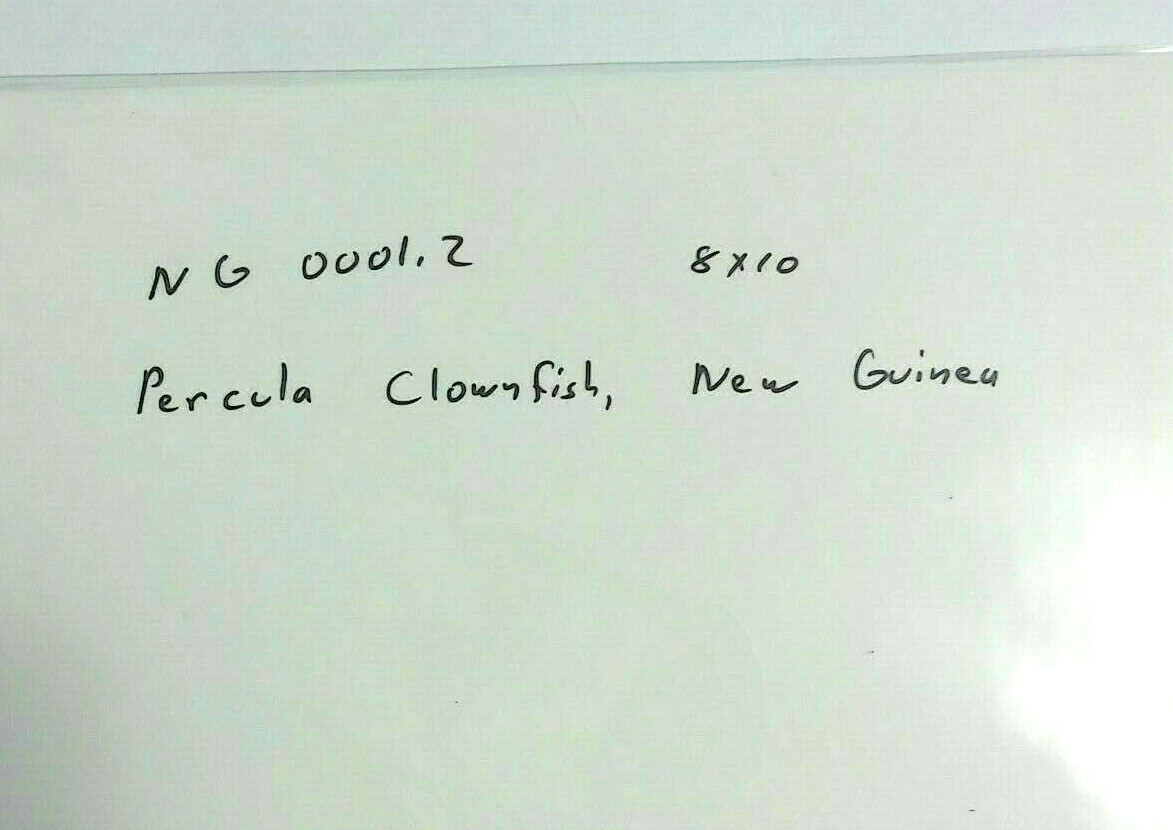 NG 0001.2 8x10
Percula Clownfish, New Guinea